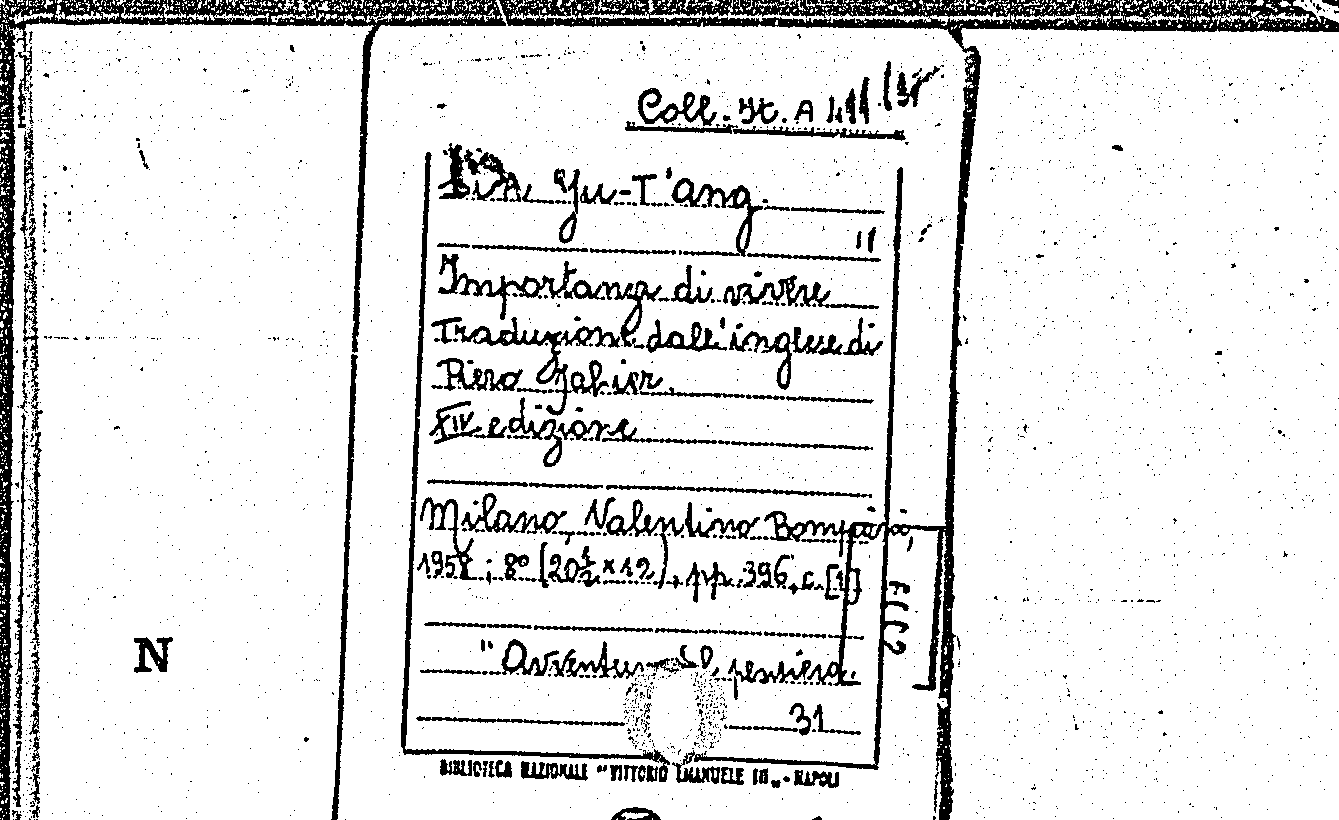 Coll. It. A 411 / 31
Lin Yu-T'ang.
"
Importanza di vivere
Traduzione dall'inglese di
Piero Jahier.
XIV edizione
Milano, Valentino Bompiani,
1958; 8° (20½×12), pp. 396, c. [1]
"Avventure pensiero.
31
BIBLIOTECA NAZIONALE "VITTORIO EMANUELE III" - NAPOLI
N